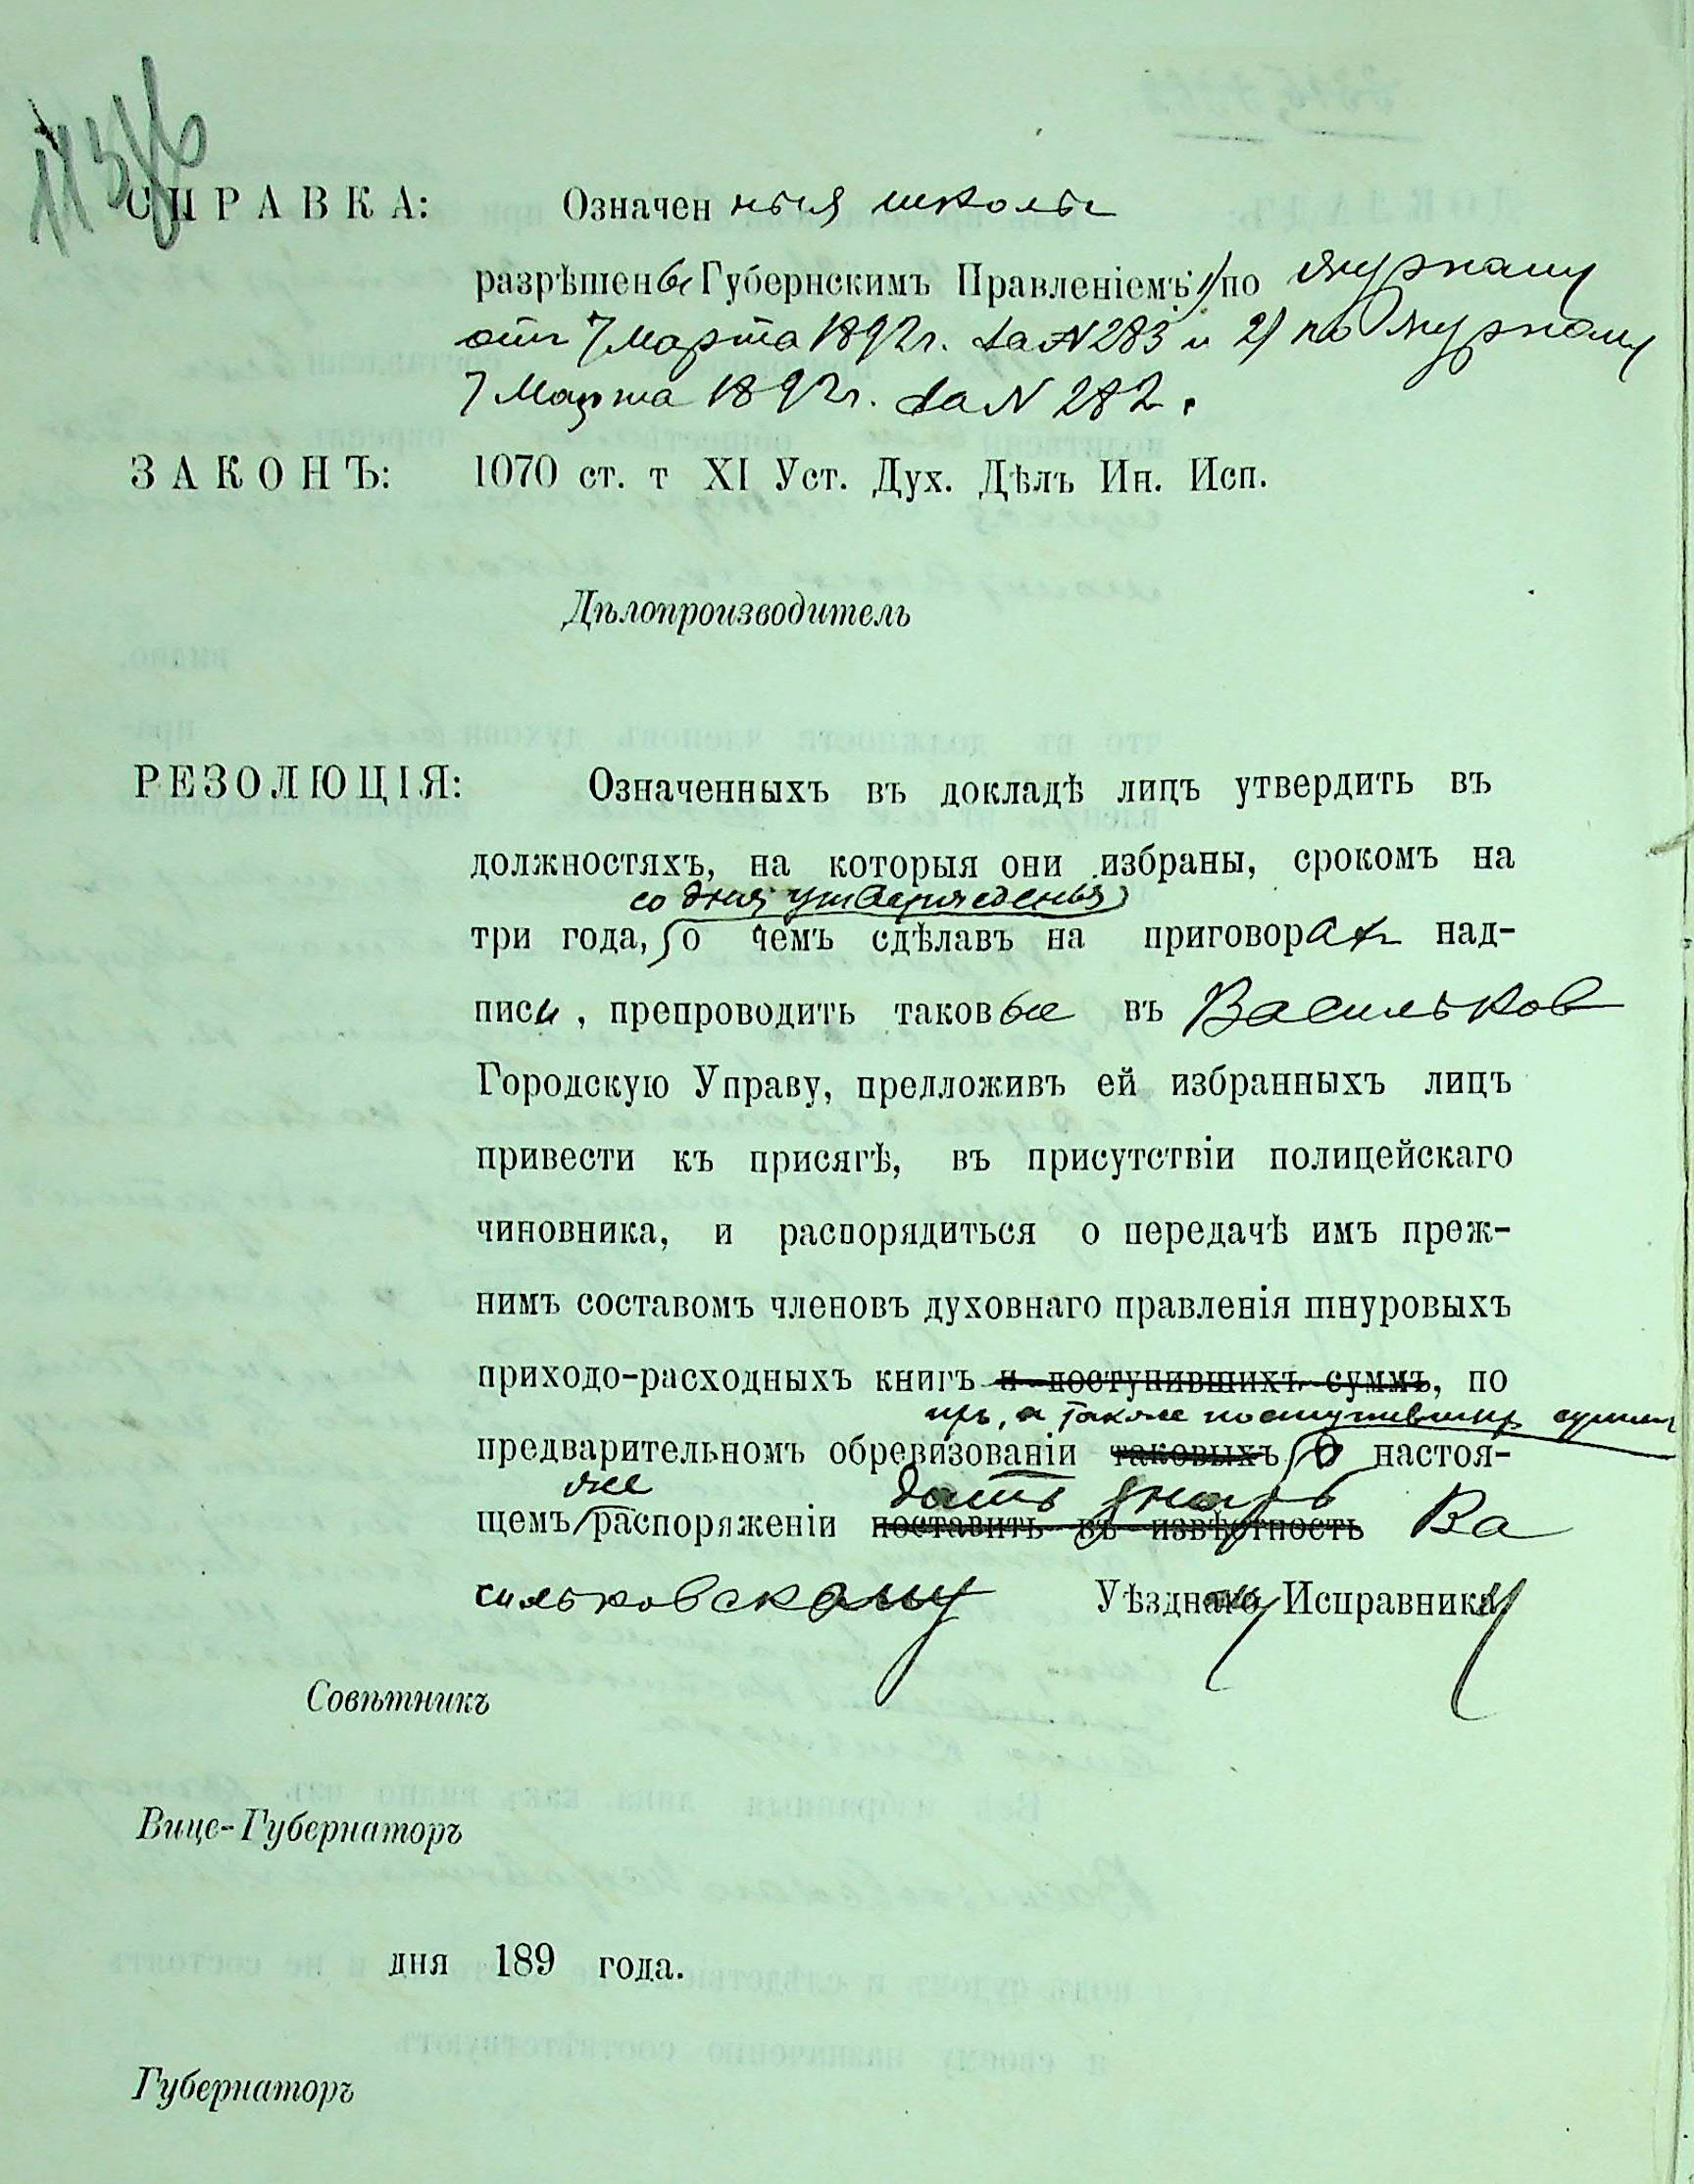 СПРАВКА: Означенныя школы
разрѣшены Губернскимъ Правленіемъ: 1) по журналу
отъ 7 Марта 1892 г. за N 283 и 2) по журналу
7 Марта 1892 г. за N 282.
ЗАКОНЪ: 1070 ст. т XI Уст. Дух. Дѣлъ Ин. Исп.
Дѣлопроизводитель
РЕЗОЛЮЦІЯ: Означенныхъ въ докладѣ лицъ утвердить въ
должностяхъ, на которыя они избраны, срокомъ на
со дня утвержденія
три года, о чемъ сдѣлавъ на приговорахъ над-
писи, препроводить таковые въ Васильков
Городскую Управу, предложивъ ей избранныхъ лицъ
привести къ присягѣ, въ присутствіи полицейскаго
чиновника, и распорядиться о передачѣ имъ преж-
нимъ составомъ членовъ духовнаго правленія шнуровыхъ
приходо-расходныхъ книгъ и поступившихъ суммъ, по
ихъ, а также поступившихъ суммъ
предварительномъ обревизованіи таковыхъ О настоя-
же дать знать
щемъ распоряженіи поставить въ извѣстность Ва
сильковскому Уѣздному Исправнику
Совѣтникъ
Вице-Губернаторъ
дня 189 года.
Губернаторъ